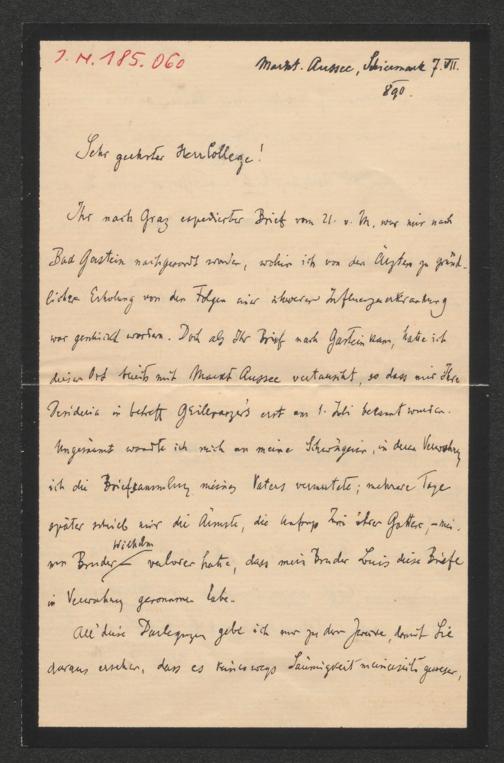 J. N. 185.060
Markt-Aussee, Steiermark 7. VII.
890.
Sehr geehrter Herr College!
Ihr nach Graz expedierter Brief vom 21. v. M. war mir nach
Bad Gastein nachgesandt worden, wohin ich von den Ärzten zu gründ-
lichen Erholung von den Folgen einer schweren Influenzaerkrankung
war geschickt worden. Doch als Ihr Brief nach Gastein kam, hatte ich
diesen Ort bereits mit Markt Aussee vertauscht, so dass mir Ihre
Desideria in betreff Grillparzer's erst am 1. Juli bekannt wurden.
Ungesäumt wandte ich mich an meine Schwägerin, in deren Verwahrung
ich die Briefsammlung meines Vaters vermutete; mehrere Tage
später schrieb mir die Ärmste, die anfangs Juni ihren Gatten, – mei-
nen Bruder Wilhelm – verloren hatte, dass mein Bruder Louis diese Briefe
in Verwahrung genommen habe.
All' diese Darlegungen gebe ich nur zu dem Zwecke, damit Sie
daraus ersehen, dass es keineswegs Säumigkeit meinerseits gewesen,